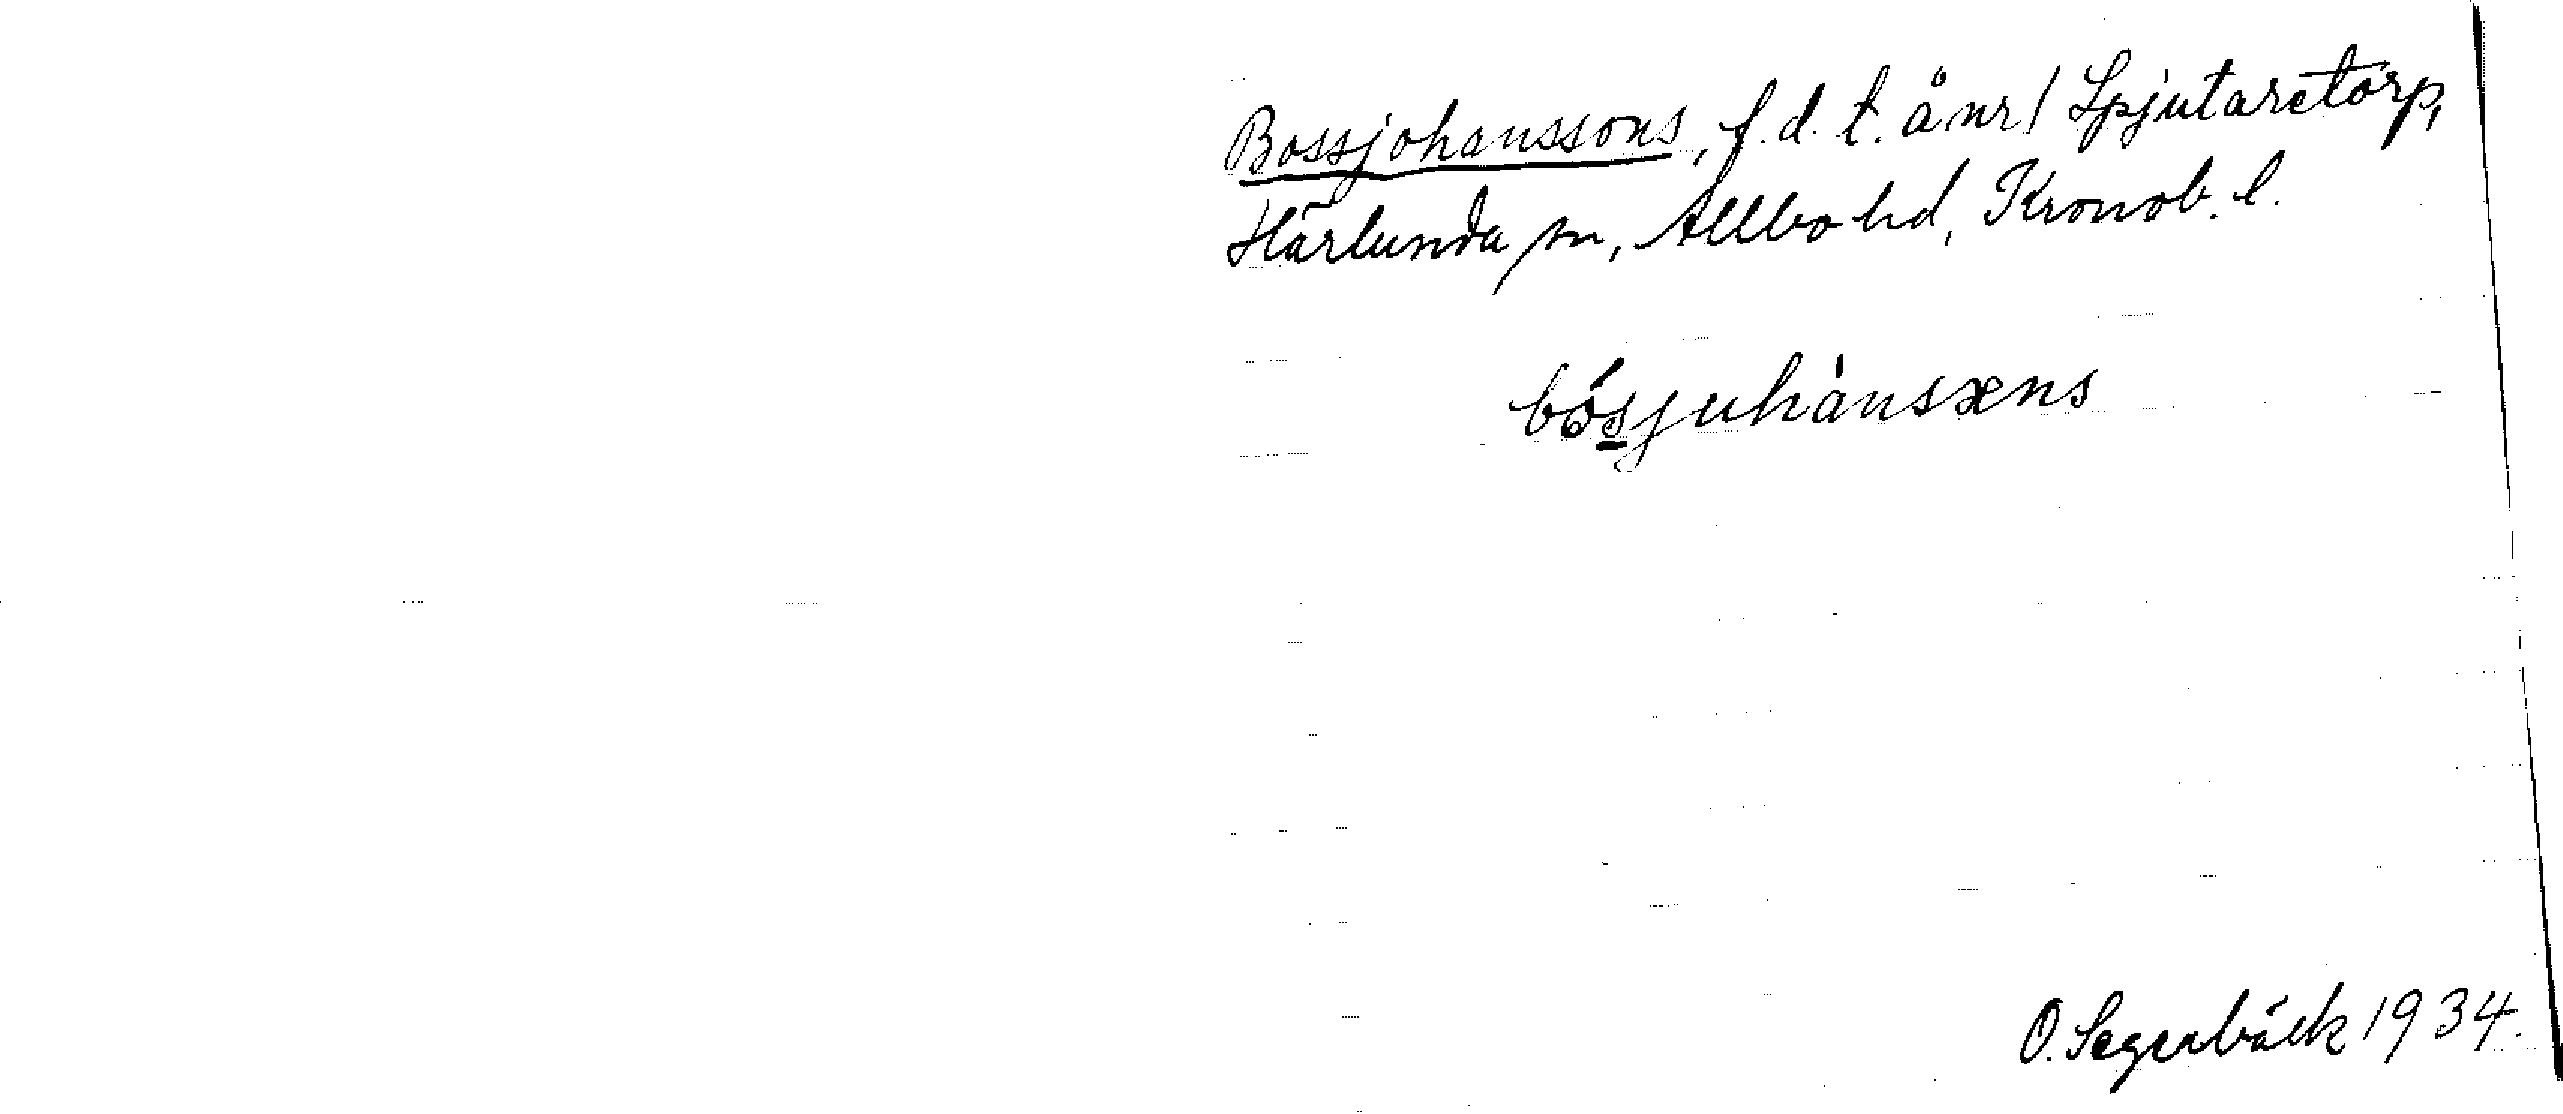 Bossjohanssons, f.d. t. å nr 1 Spjutaretorp,
Härlunda sn, Allbo hd, Kronob. l.
bósjuhànsæns
O. Segerbäck 1934.